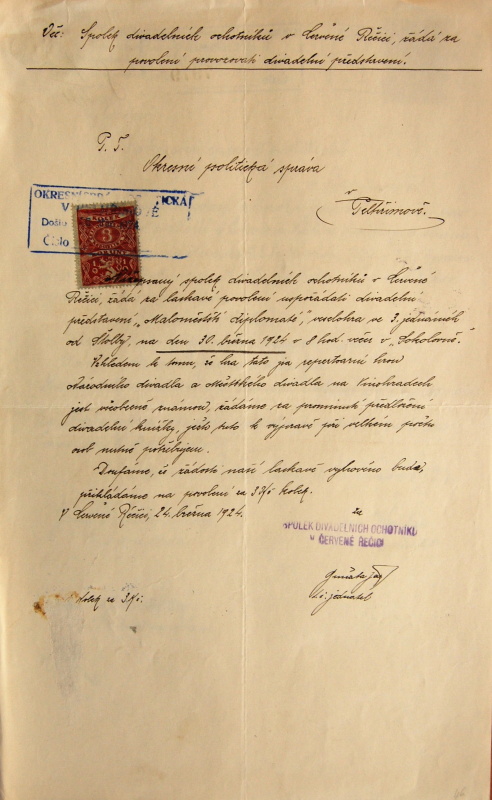 Věc: Spolek divadelních ochotníků v Červené Řečici, žádá za
povolení provozovati divadelní představení.
P. T.
Okresní politická správa
v
Pelhřimově.
OKRESNÍ POLITICKÁ
Došlo
Číslo
3
spolek divadelních ochotníků v Červené
Řečici, žádá za laskavé povolení uspořádati divadelní
představení, „Maloměstští diplomaté", veselohra ve 3. jednáních
od Štolby, na den 30. března 1924 v 8 hod. večer v „Sokolovně".
Vzhledem k tomu, že hra tato je repertoirní hrou
Národního divadla a Městského divadla na Vinohradech
jest všeobecně známou, žádáme za prominutí předložení
divadelní knížky, ješto tuto k výpravě při velkém počtu
osob nutně potřebujem.
Doufáme, že žádosti naší laskavě vyhověno bude,
přikládáme na povolení za 3 Kč kolek.
V Červené Řečici, 24. března 1924.
za
SPOLEK DIVADELNÍCH OCHOTNÍKŮ
v ČERVENÉ ŘEČICI
kolek za 3 Kč.
t. č. jednatel